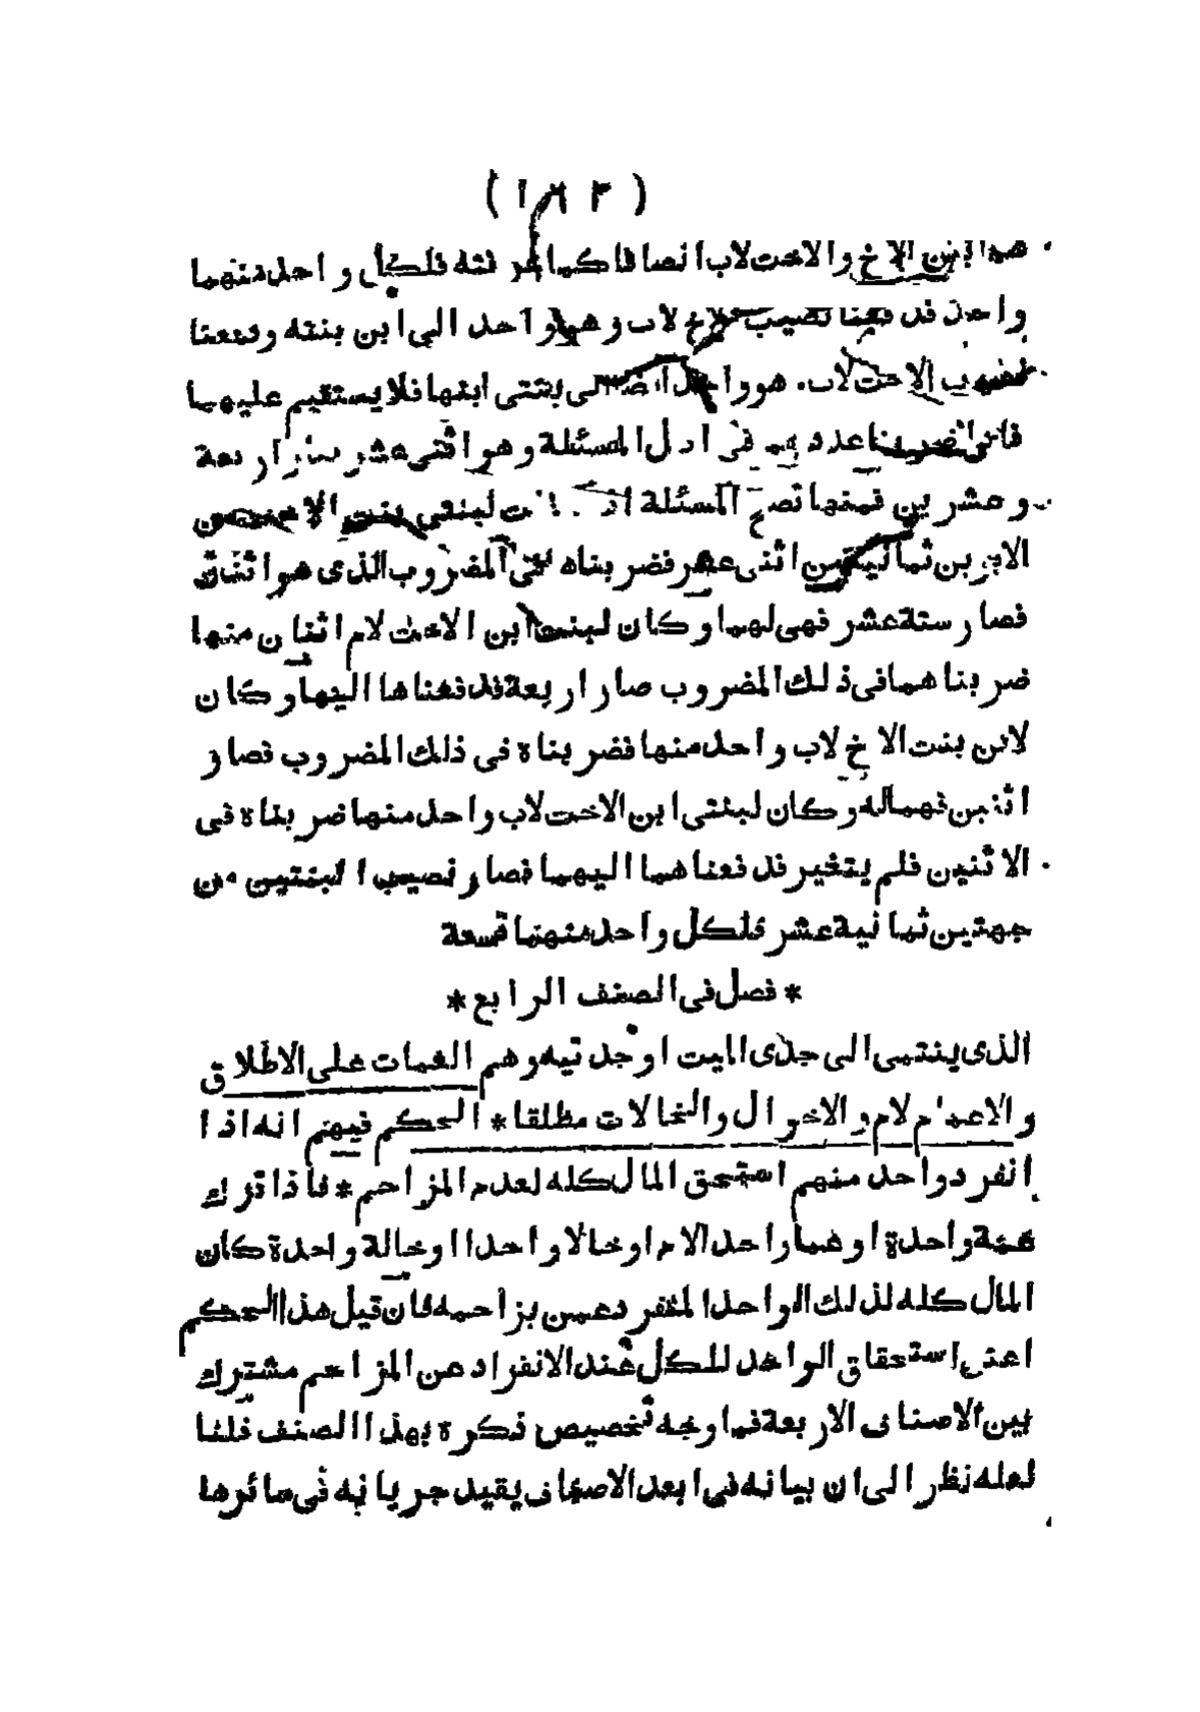 (١٨٣)
بين الاخ والاخت لاب انصافا كما عرفته فلكل واحد منهما
واحد فدفعنا نصيب الاخ لاب وهو واحد الى ابن بنته ودفعنا
نصيب الاخت لاب هو واحد ايضا الى بنتى ابنها فلا يستقيم عليهما
فضربنا عددهم فى اصل المسئلة وهو اثنى عشر صار اربعة
وعشرين فمنها تصح المسئلة اذ كانت لبنتى بنت الاخت من
الابوين ثمانية من اثنى عشر فضربناه فى المضروب الذى هو اثنان
فصار ستة عشر فهى لهما وكان لبنت ابن الاخت لام اثنان منها
ضربناهما فى ذلك المضروب صار اربعة فدفعناها اليها وكان
لابن بنت الاخ لاب واحد منها فضربناه فى ذلك المضروب فصار
اثنين فهما له وكان لبنتى ابن الاخت لاب واحد منها ضربناه فى
الاثنين فلم يتغير فدفعناهما اليهما فصار نصيب البنتين من
جهتين ثمانية عشر فلكل واحد منهما تسعة
* فصل فى الصنف الرابع *
الذى ينتمى الى جدى الميت او جدتيه وهم العمات على الاطلاق
والاعمام لام والاخوال والخالات مطلقا * الحكم فيهم انه اذا
انفرد واحد منهم استحق المال كله لعدم المزاحم * فاذا ترك
عمة واحدة او عما واحدا لام او خالا واحدا او خالة واحدة كان
المال كله لذلك الواحد المنفرد عمن يزاحمه فان قيل هذا الحكم
اعنى استحقاق الواحد للكل عند الانفراد عن المزاحم مشترك
بين الاصناف الاربعة فما وجه تخصيص ذكره بهذا الصنف قلنا
لعله نظر الى ان بيانه فى ابعد الاصناف يفيد جريانه فى سائرها